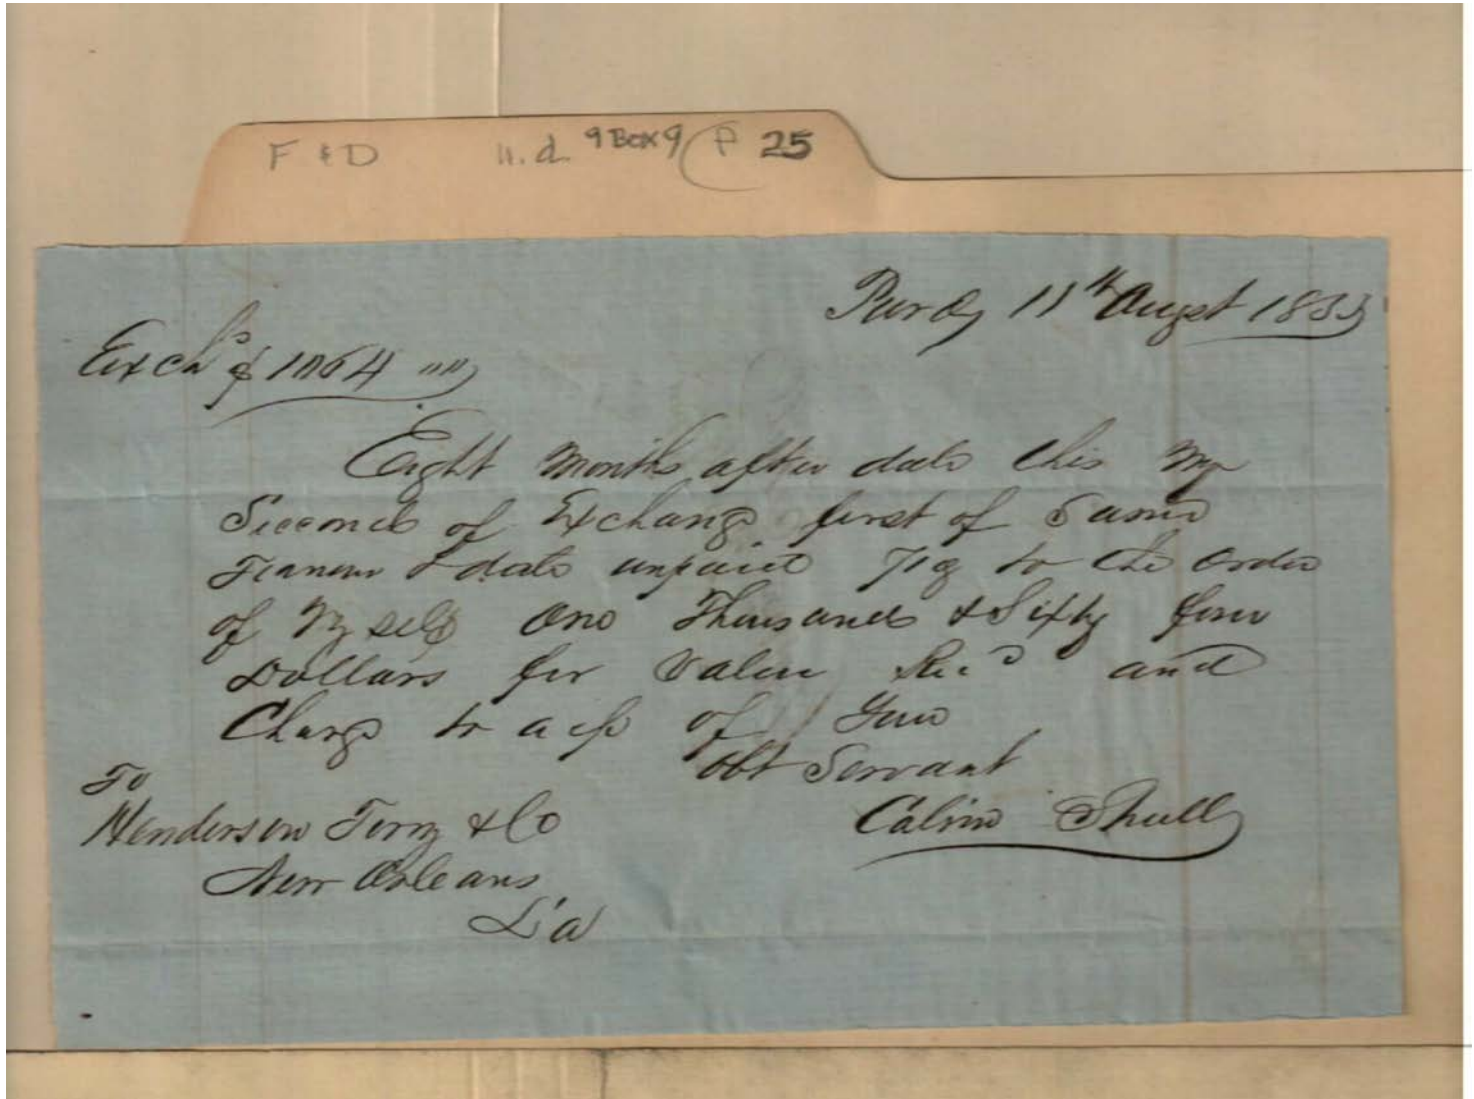 F & D n.d. 9 Box 9 P 25
Purdy 11th Augst 1855
Exch $1064 "")
Eight Months after date this my
Second of Exchange first of Same
Tenner & date unpaid Pay to the order
of My self One Thousand & Sixty four
Dollars for Value Recd and
Charge to a c/o of Your
Obt Servant
To
Calvin Shull
Henderson Terry & Co
New Orleans
La